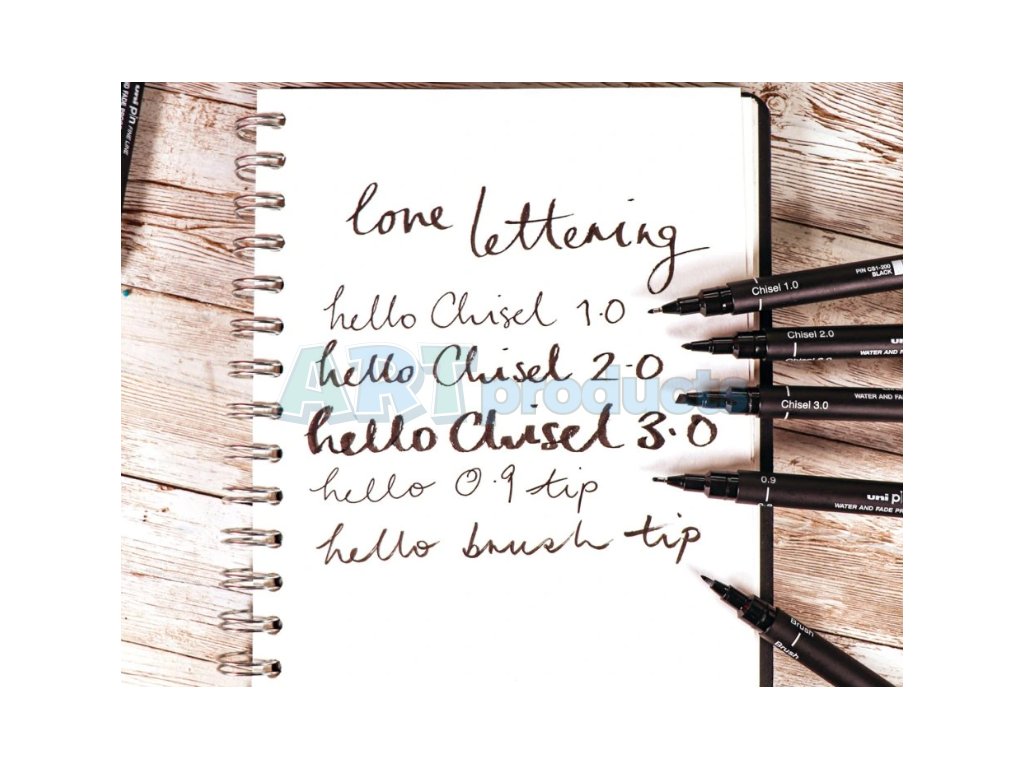 love lettering
hello Chisel 1.0
hello Chisel 2.0
hello Chisel 3.0
hello 0.9 tip
hello brush tip
ART products
uni pin FINE LINE
PIN CS1-200
BLACK
Chisel 1.0
Chisel 2.0
WATER AND
WATER AND FADE
Chisel 3.0
0.9
uni pi
WATER AND FADE PR
Brush
Brush